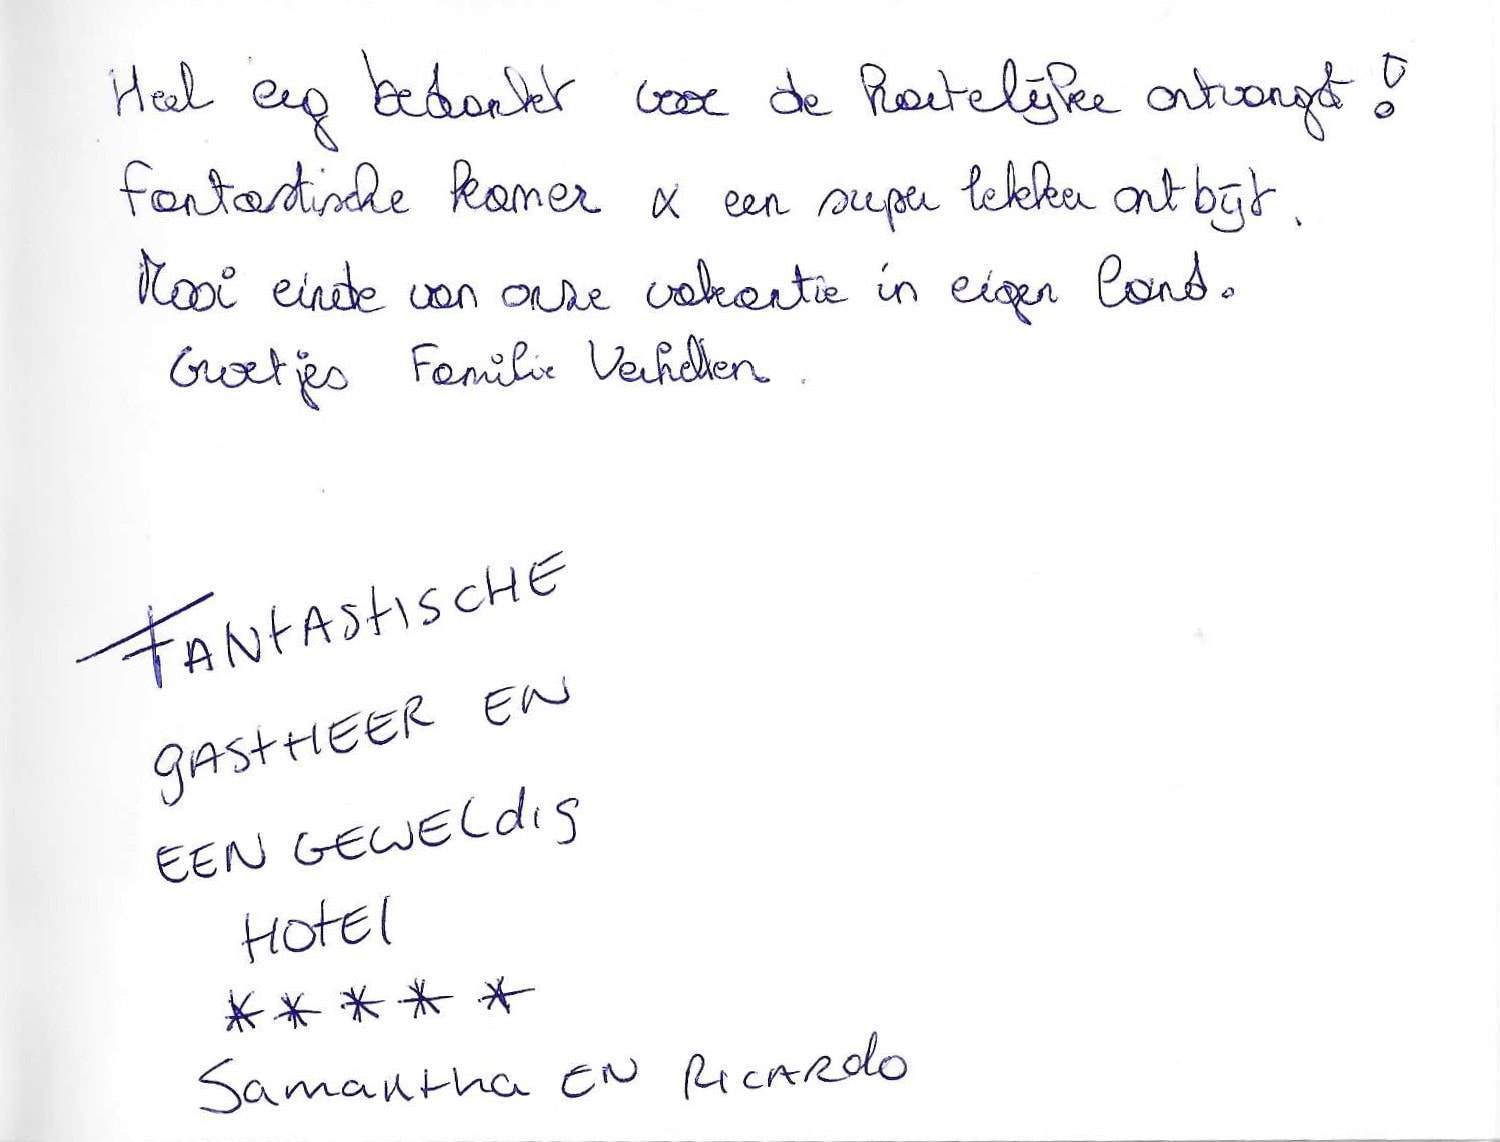 Heel erg bedankt voor de hartelijke ontvangst!
Fantastische kamer & een super lekker ontbijt.
Mooi einde van onze vakantie in eigen land.
Groetjes Familie Verhellen.
FANTASTISCHE
GASTHEER EN
EEN GEWELDIG
HOTEL
* * * * *
Samantha EN RICARDO